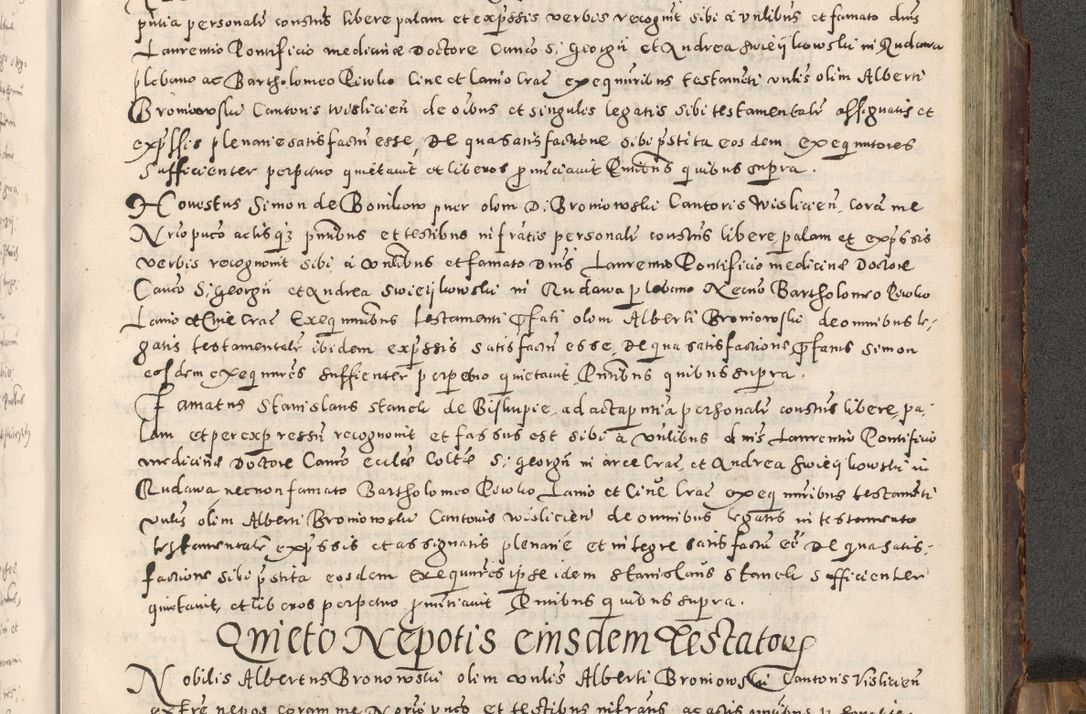 pntia personalr constus libere palam et expssis verbis recognit sibi a vnlibus et famato dnis
Laurentio Pontificio medicinæ Doctore Canco S. Georgii et Andrea Swieÿkowski in Rudawa
plebano ac Bartholomeo Rewlio Cine et Lanio Crac exequutoribus testamti vnlis olim Alberti
Broniowski Cantoris wislicien de oibus et singulis legatis sibi testamentalr assignatis et
expssis plenarie satisfactu esse, De qua satisfactione sibi pstita eosdem exequutores
sufficienter perpetuo quietauit et liberos pnunciauit Pntibus quibus supra.
Honestus Simon de Bonikow puer olim D. Broniowski Cantoris Wislicien. Cora me
Nrio puco actisqz pntibus et testibus infratis personalr constus libere palam et expssis
verbis recognouit sibi a vnlibus et famato Dnis Laurentio Pontificio medicinæ Doctore
Canco S. Georgii et Andrea Swieÿkowski in Rudawa plebano Necno Bartholomeo Rewlio
Lanio et Cine Crac Exequutoribus testamenti pfati olim Alberti Broniowski de omnibus le-
gatis testamentalr ibidem expssis satisfactu esse, De qua satisfactione pfatus Simon
eosdem exequutores suffienter perpetuo quietauit Pntibus quibus supra.
Famatus Stanislaus Stanek de Biskupie, ad acta pntia personalr constus libere, pa-
lam et per expressu recognouit et fassus est sibi a vnlibus dnis Laurentio Pontificio
medicinæ Doctore Canco eccles Coltæ S. Georgii in arce Crac, et Andrea Swieÿkowski in
Rudawa necnon famato Bartholomeo Rewlio Lanio et Cine Crac exequutoribus testamti
vnlis olim Alberti Broniowski Cantoris wislicien de omnibus legatis in testamento
testamentalr expssis et assignatis plenarie et integre satisfactu eē De qua satis-
factione sibi pstita eosdem exequutores ipse idem Stanislaus Stanek sufficienter
quietauit, et liberos perpetuo pnunciauit Pntibus quibus supra.
Quieto Nepotis eiusdem Testatoris
Nobilis Albertus Bronowski olim vnlis Alberti Broniowski Cantoris Vislicien
ex fre nepos coram me Nario puco et testibus infratis ac actis pntibus